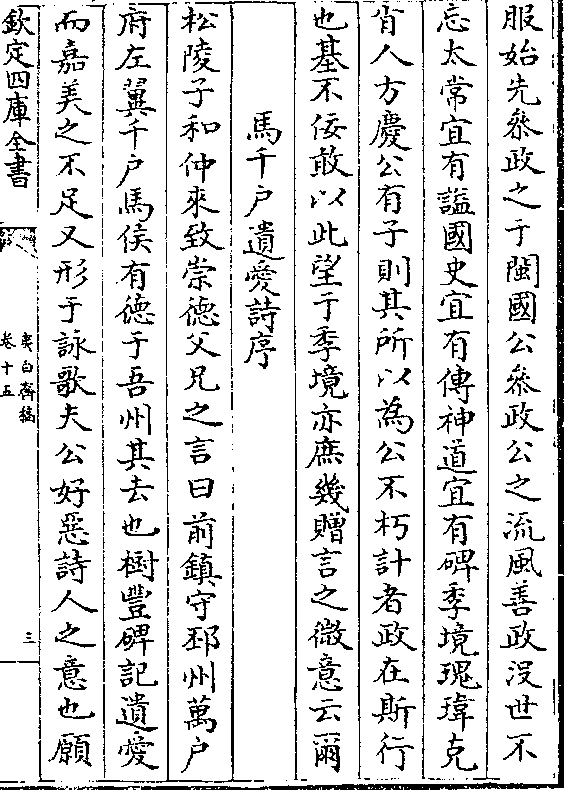 服始先叅政之于閩國公叅政公之流風善政没世不
忘太常宜有謚國史宜有傳神道宜有碑季境瑰瑋克
肖人方慶公有子則其所以為公不朽計者政在斯行
也基不佞敢以此望于季境亦庶幾贈言之微意云爾
馬千户遺愛詩序
松陵子和仲來致崇德父兄之言曰前鎮守邳州萬户
府左翼千户馬侯有德于吾州其去也樹豐碑記遺愛
而嘉美之不足又形于詠歌夫公好惡詩人之意也願
欽定四庫全書
夷白齋稿
卷十五
三